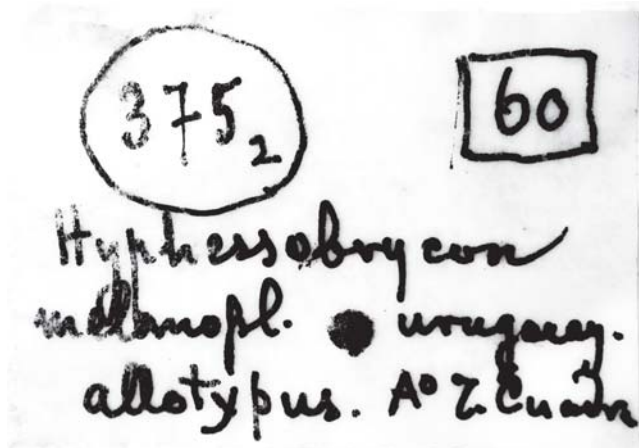 375 2 60
Hyphessobrycon
melanopl. uruguay.
allotypus. Aº